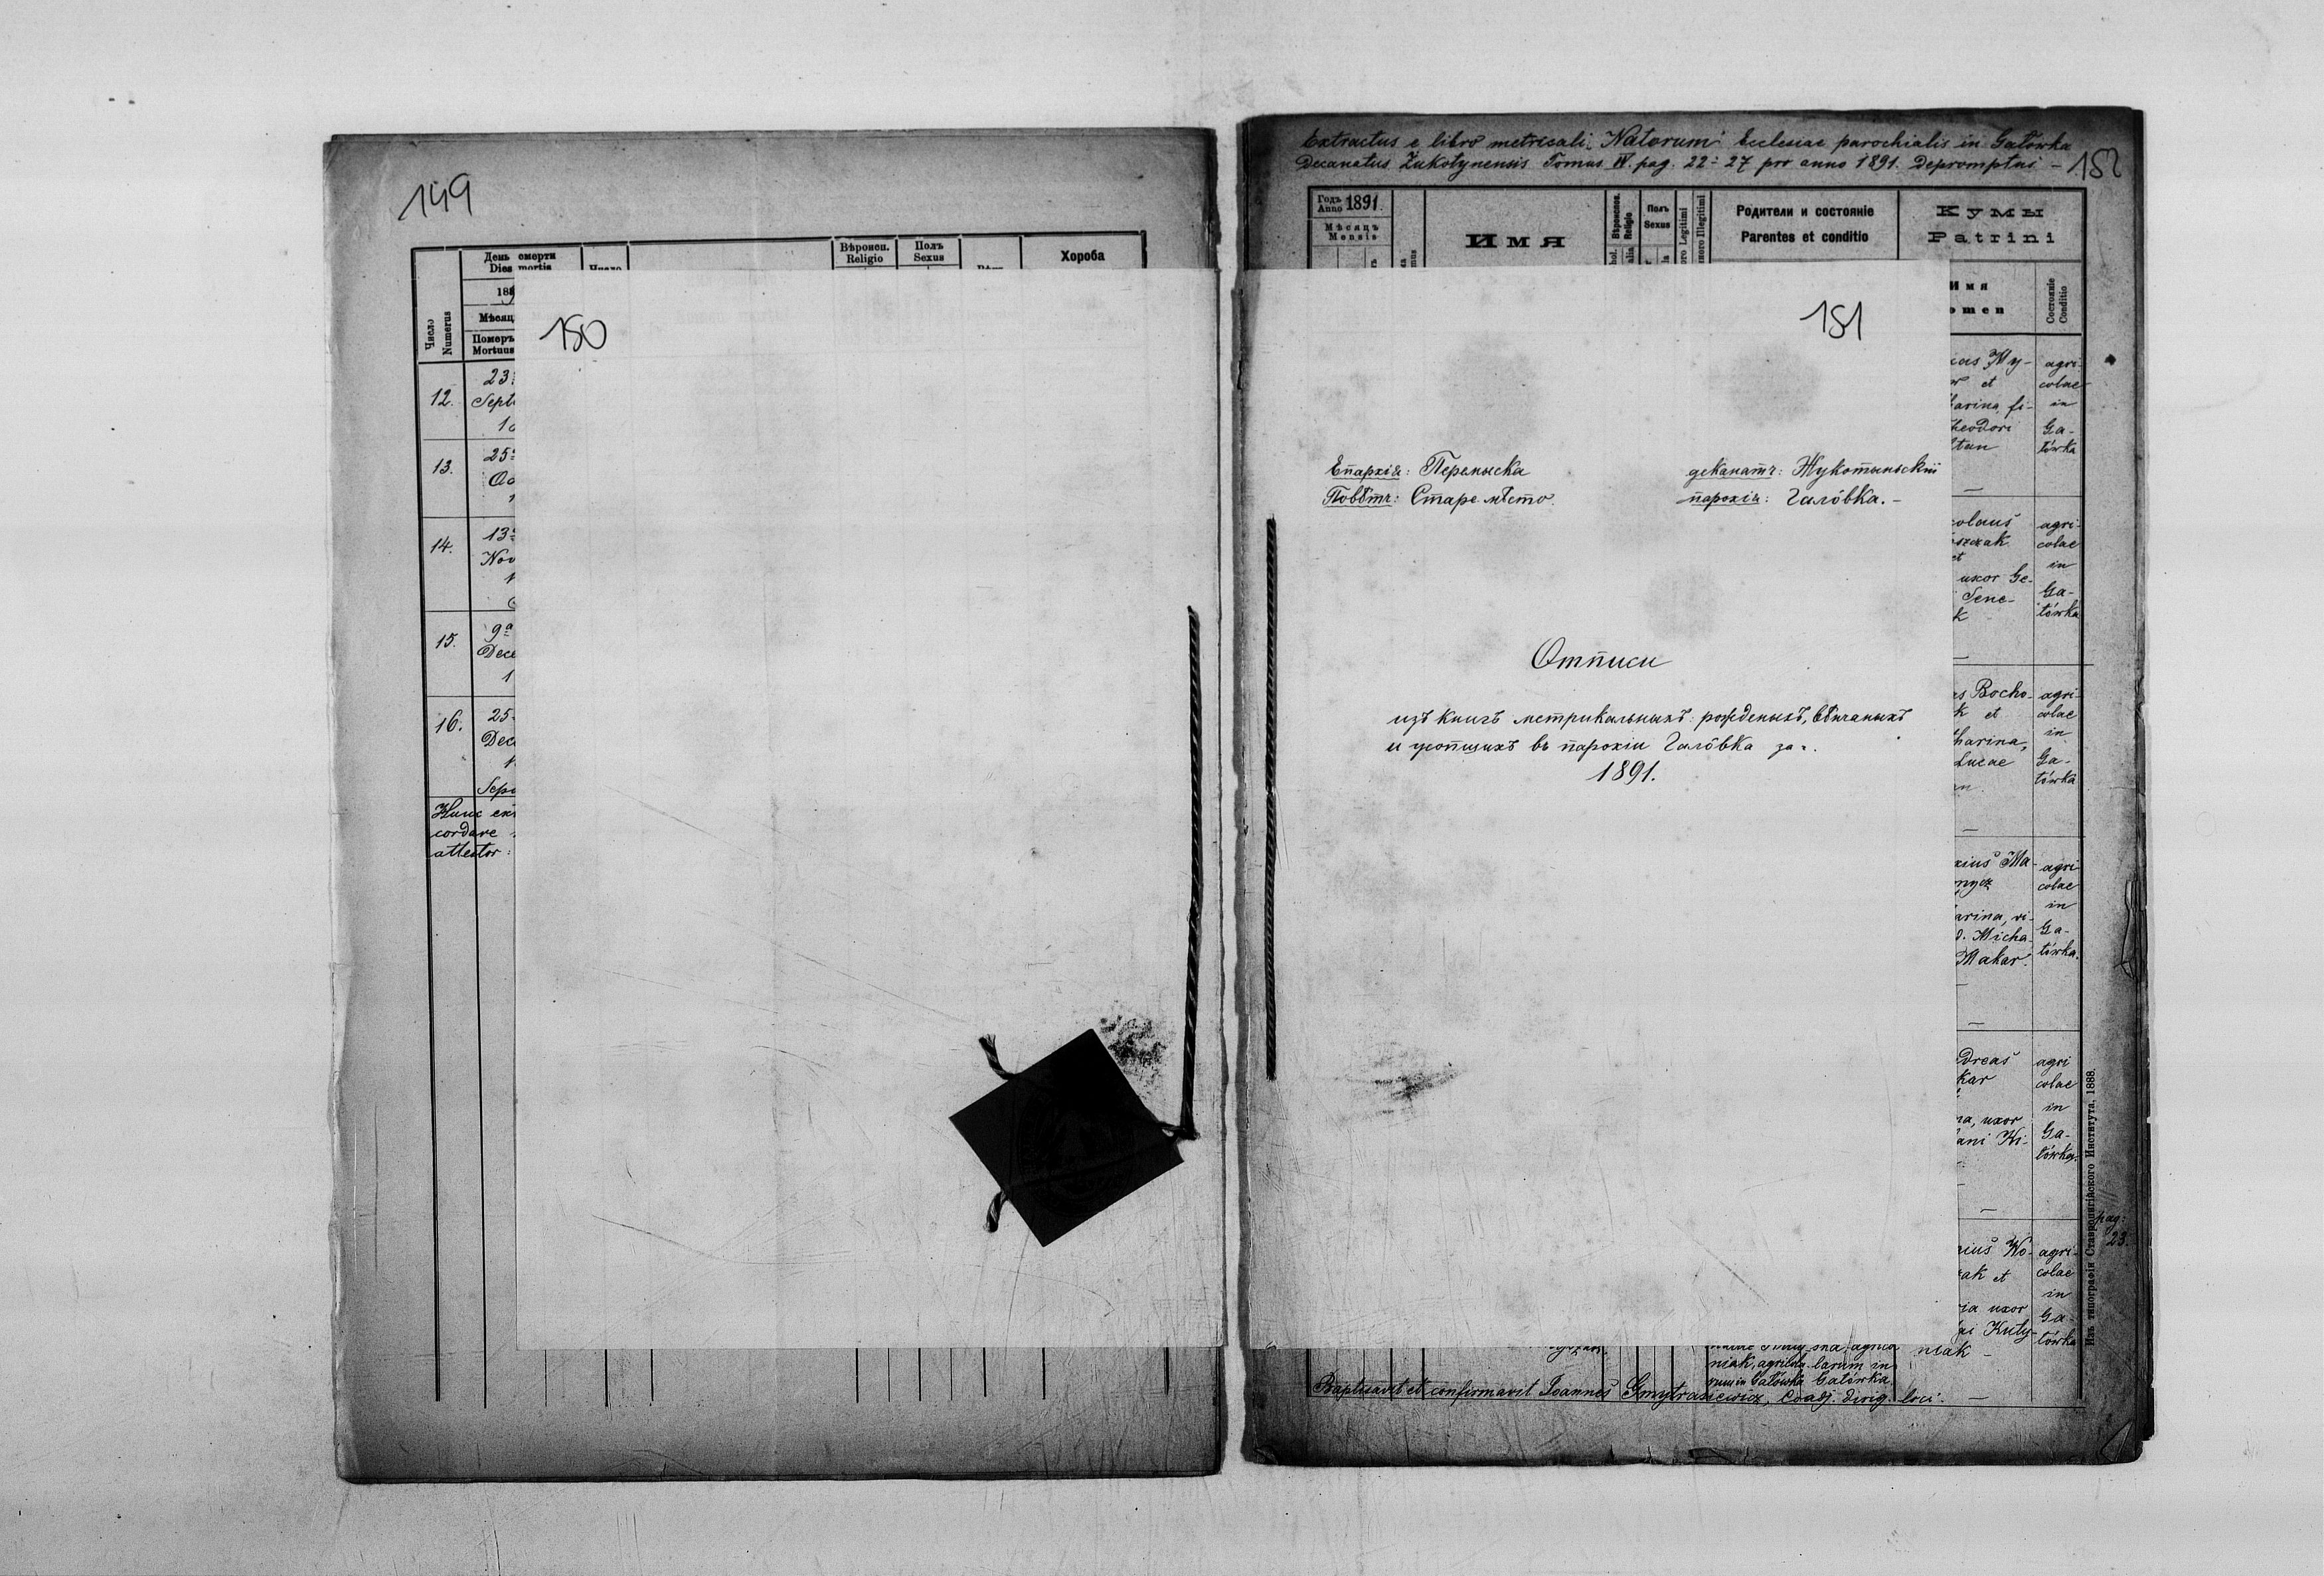 149
День смерти
Dies mortis
Вѣроисп.
Religio
Полъ
Sexus
Хороба
Число
Numerus
Мѣсяц
Померъ
Mortuus
12.
23
Sept
13.
25
14.
13
Nov
15.
9ª
Dece
16.
25
Dec
Sepu
Hunc ex
cordare
attestor:
150
Extractus e libro metricali Natorum Ecclesiae parochialis in Gałówka
Decanatus Żukotynensis Tomus IV. pag. 22-27 pro anno 1891. Depromptus -
152
Годъ
Anno 1891.
Мѣсяцъ
Mensis
Имя
Вѣроиспов.
Religio
Полъ
Sexus
Родители и состояніе
Parentes et conditio
Кумы
Patrini
Имя
omen
Состояніе
Conditio
181
Епархія: Перемыска
деканатъ: Жукотыньскій
Повѣтъ: Старе мѣсто
парохія: Галôвка. -
Отписи
изъ книгъ метрикальныхъ рожденыхъ, вѣнчаныхъ
и усопшихъ въ парохіи Галôвка за
1891.
cas My-
et
harina fi-
heodori
agri-
colae
in
Ga-
łówka
colaus
szczak
et
uxor Ge-
Sene-
k
agri-
colae
in
Ga-
łówka
as Bocho-
k et
harina,
Lucae
agri-
colae
in
Ga-
łówka
xius Ma-
arina, vi-
d. Micha
Makar.
agri-
colae
in
Ga-
łówka.
dreas
kar
na, uxor
ani Ki-
agri
colae
in
Ga-
łówka.
pag:
23.
rius Wo-
ak et
ia uxor
ai Kuty-
niak
agri-
colae
in
Ga-
łówka
niak, agricolarum in
Gałówka Gałówka.
Baptisavit et confirmavit Joannes Gmytrasiewicz, Coadj. dirig. loci. -
Изъ типографіи Ставропигійского Института, 1888.